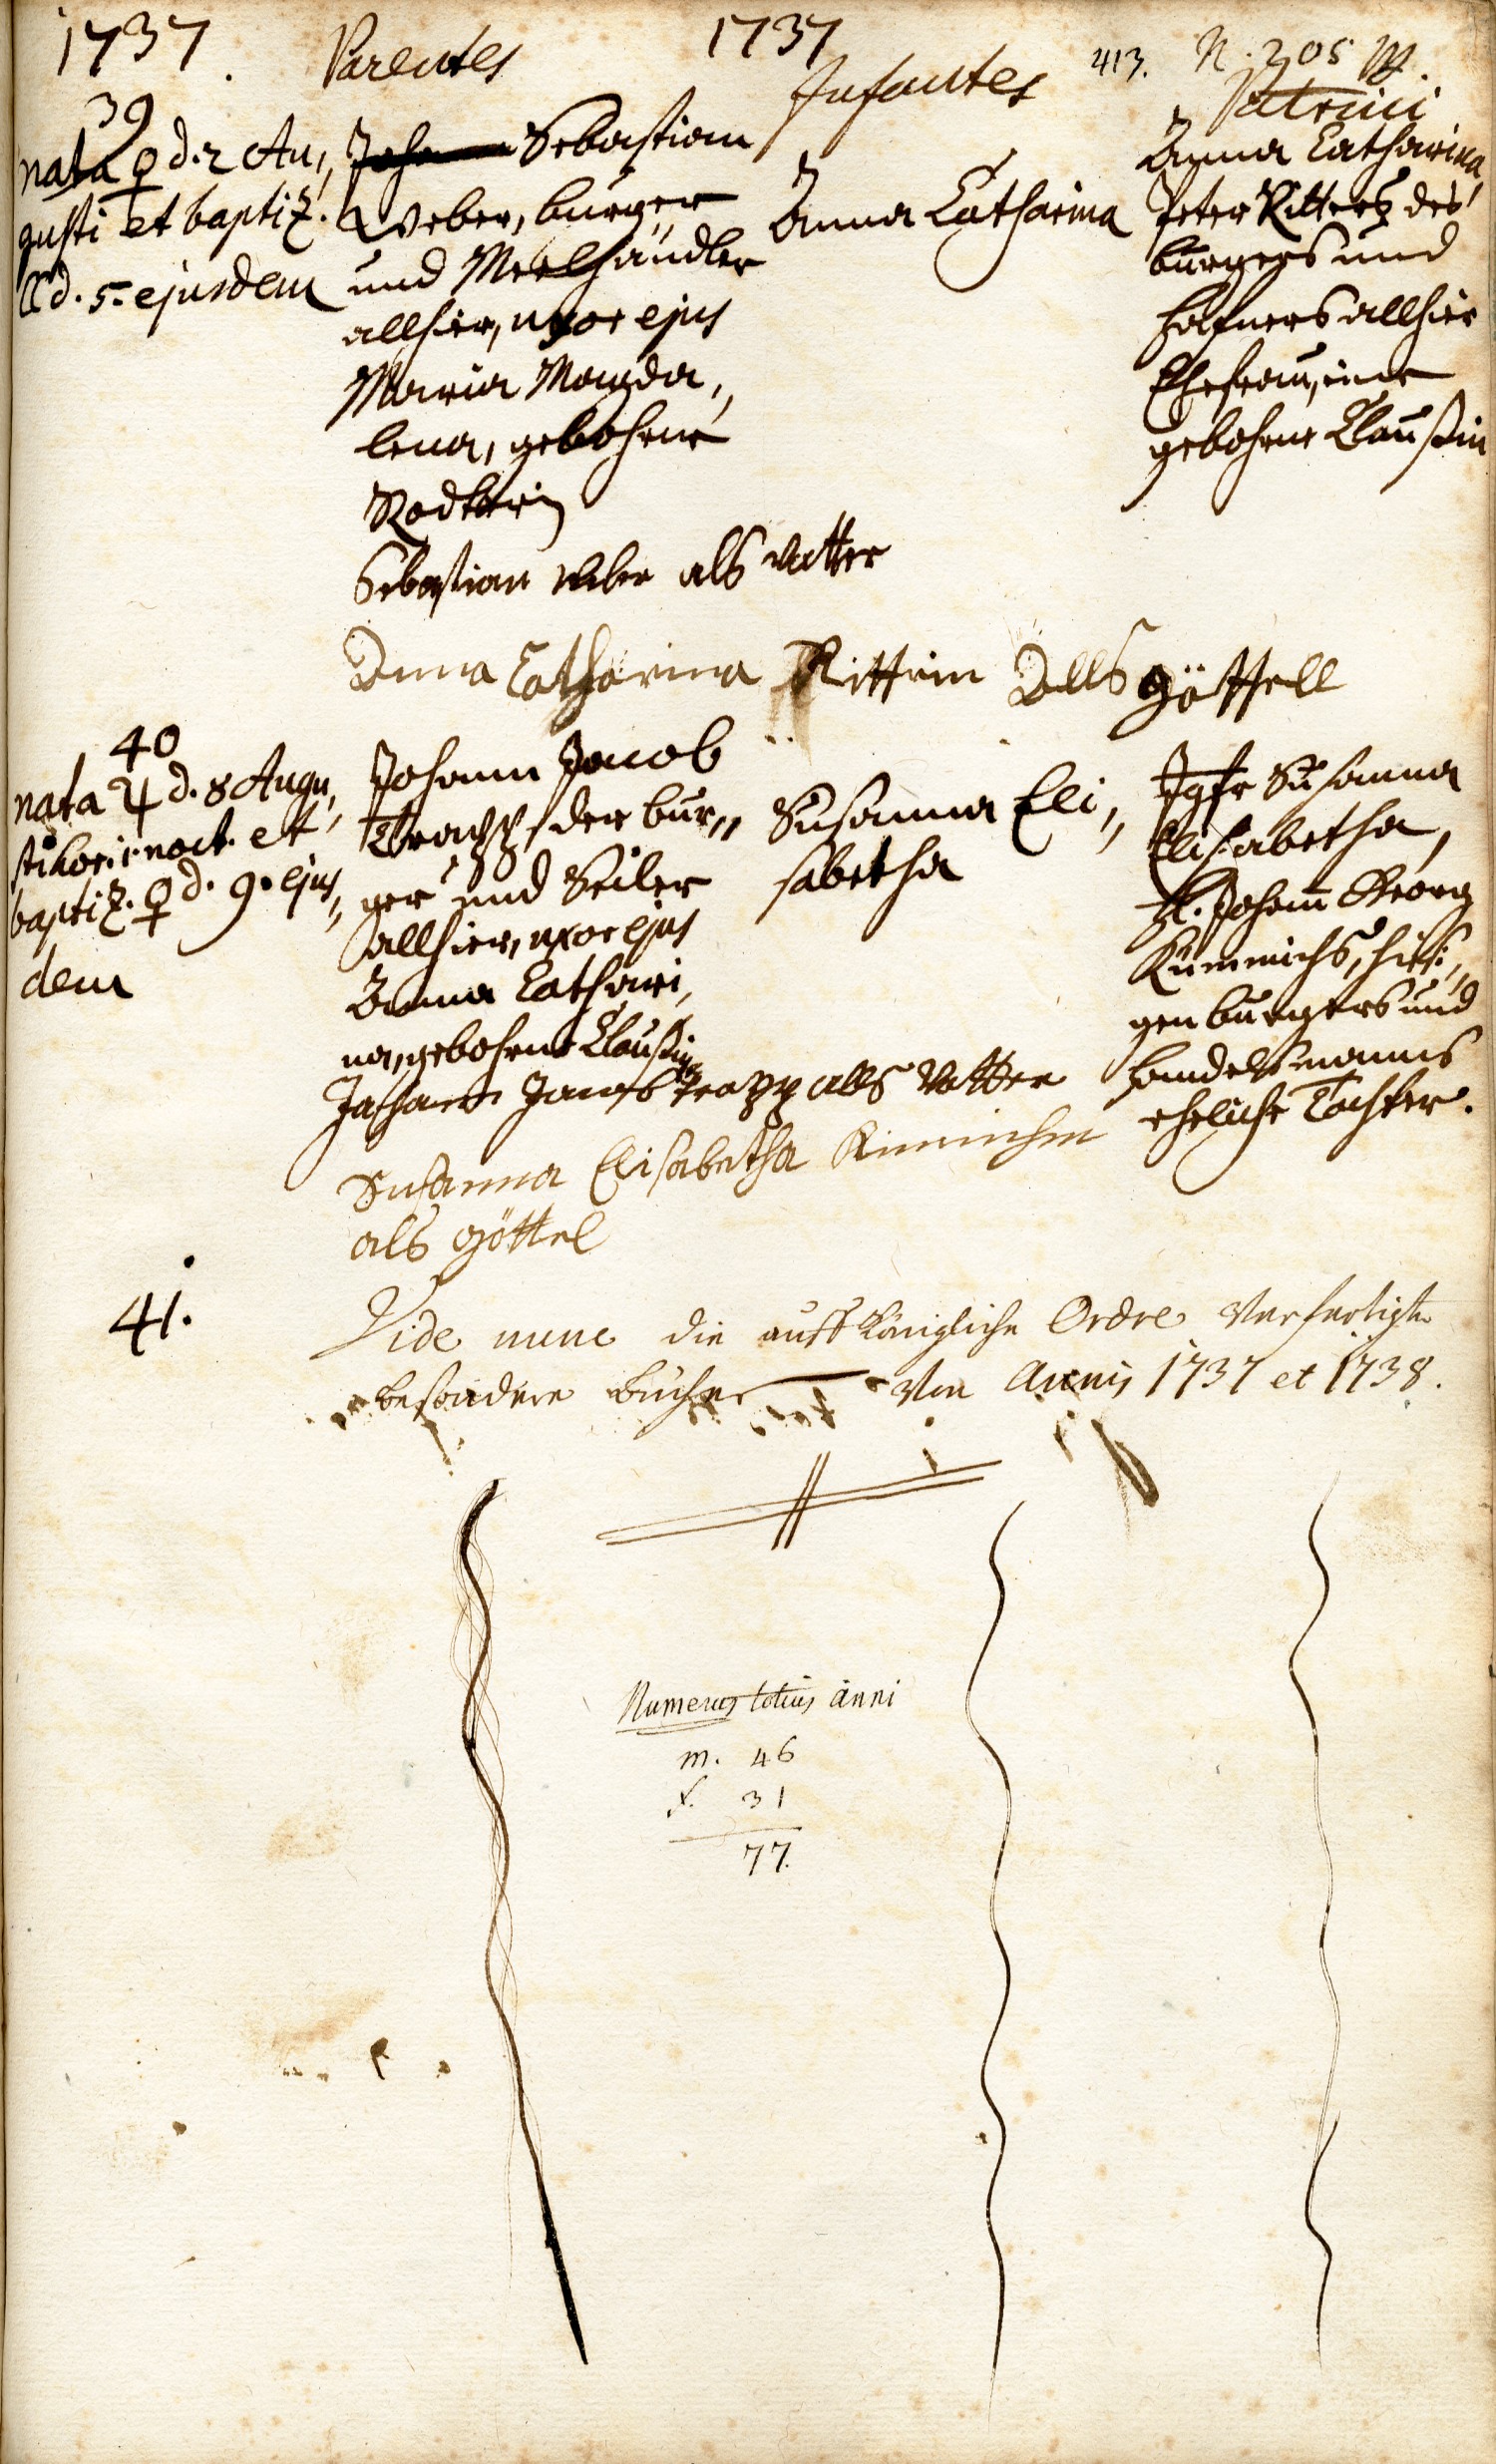 1737. Parentes 1737 Infantes 413. N. 205
Patrini
39
nata ♀ d. 2 Au,,
gusti et baptiz.
☾ d. 5. ejusdem
Johann Sebastian
Weber, burger
und Meelhändler
allhier, uxor ejus
Maria Magda,,
lena, gebohrne
Sebastian weber als vatter
Anna Catharina
Anna Catharina
Peter Ritters des
burgers und
Hafners allhier
Ehefrau, eine
gebohrne Claußin
Anna Catharina Ritterin Alls göttell
40
nata ♃ d. 8 Augu,,
sti hori 1 noct. et
baptiz. ♀ d. 9. ejus,,
dem
Johann Jacob
Trapp, der bur,,
ger und Seiler
allhier, uxor ejus
Anna Cathari,,
na, gebohrne Claußin
Johann Jacob Trapp alls Vatter
Susanna Elisabetha Kimmichin
als göttel
Susanna Eli,,
sabetha
Jgfr Susanna
Elisabetha,
H. Johann Georg
Kümmichs, hiesi,,
gen burgers und
Handelsmanns
eheliche Tochter.
41.
Vide nunc die auff Königliche Ordre verfertigte
besondere bücher von Annis 1737 et 1738.
Numerus totius anni
m. 46
f. 31
77.